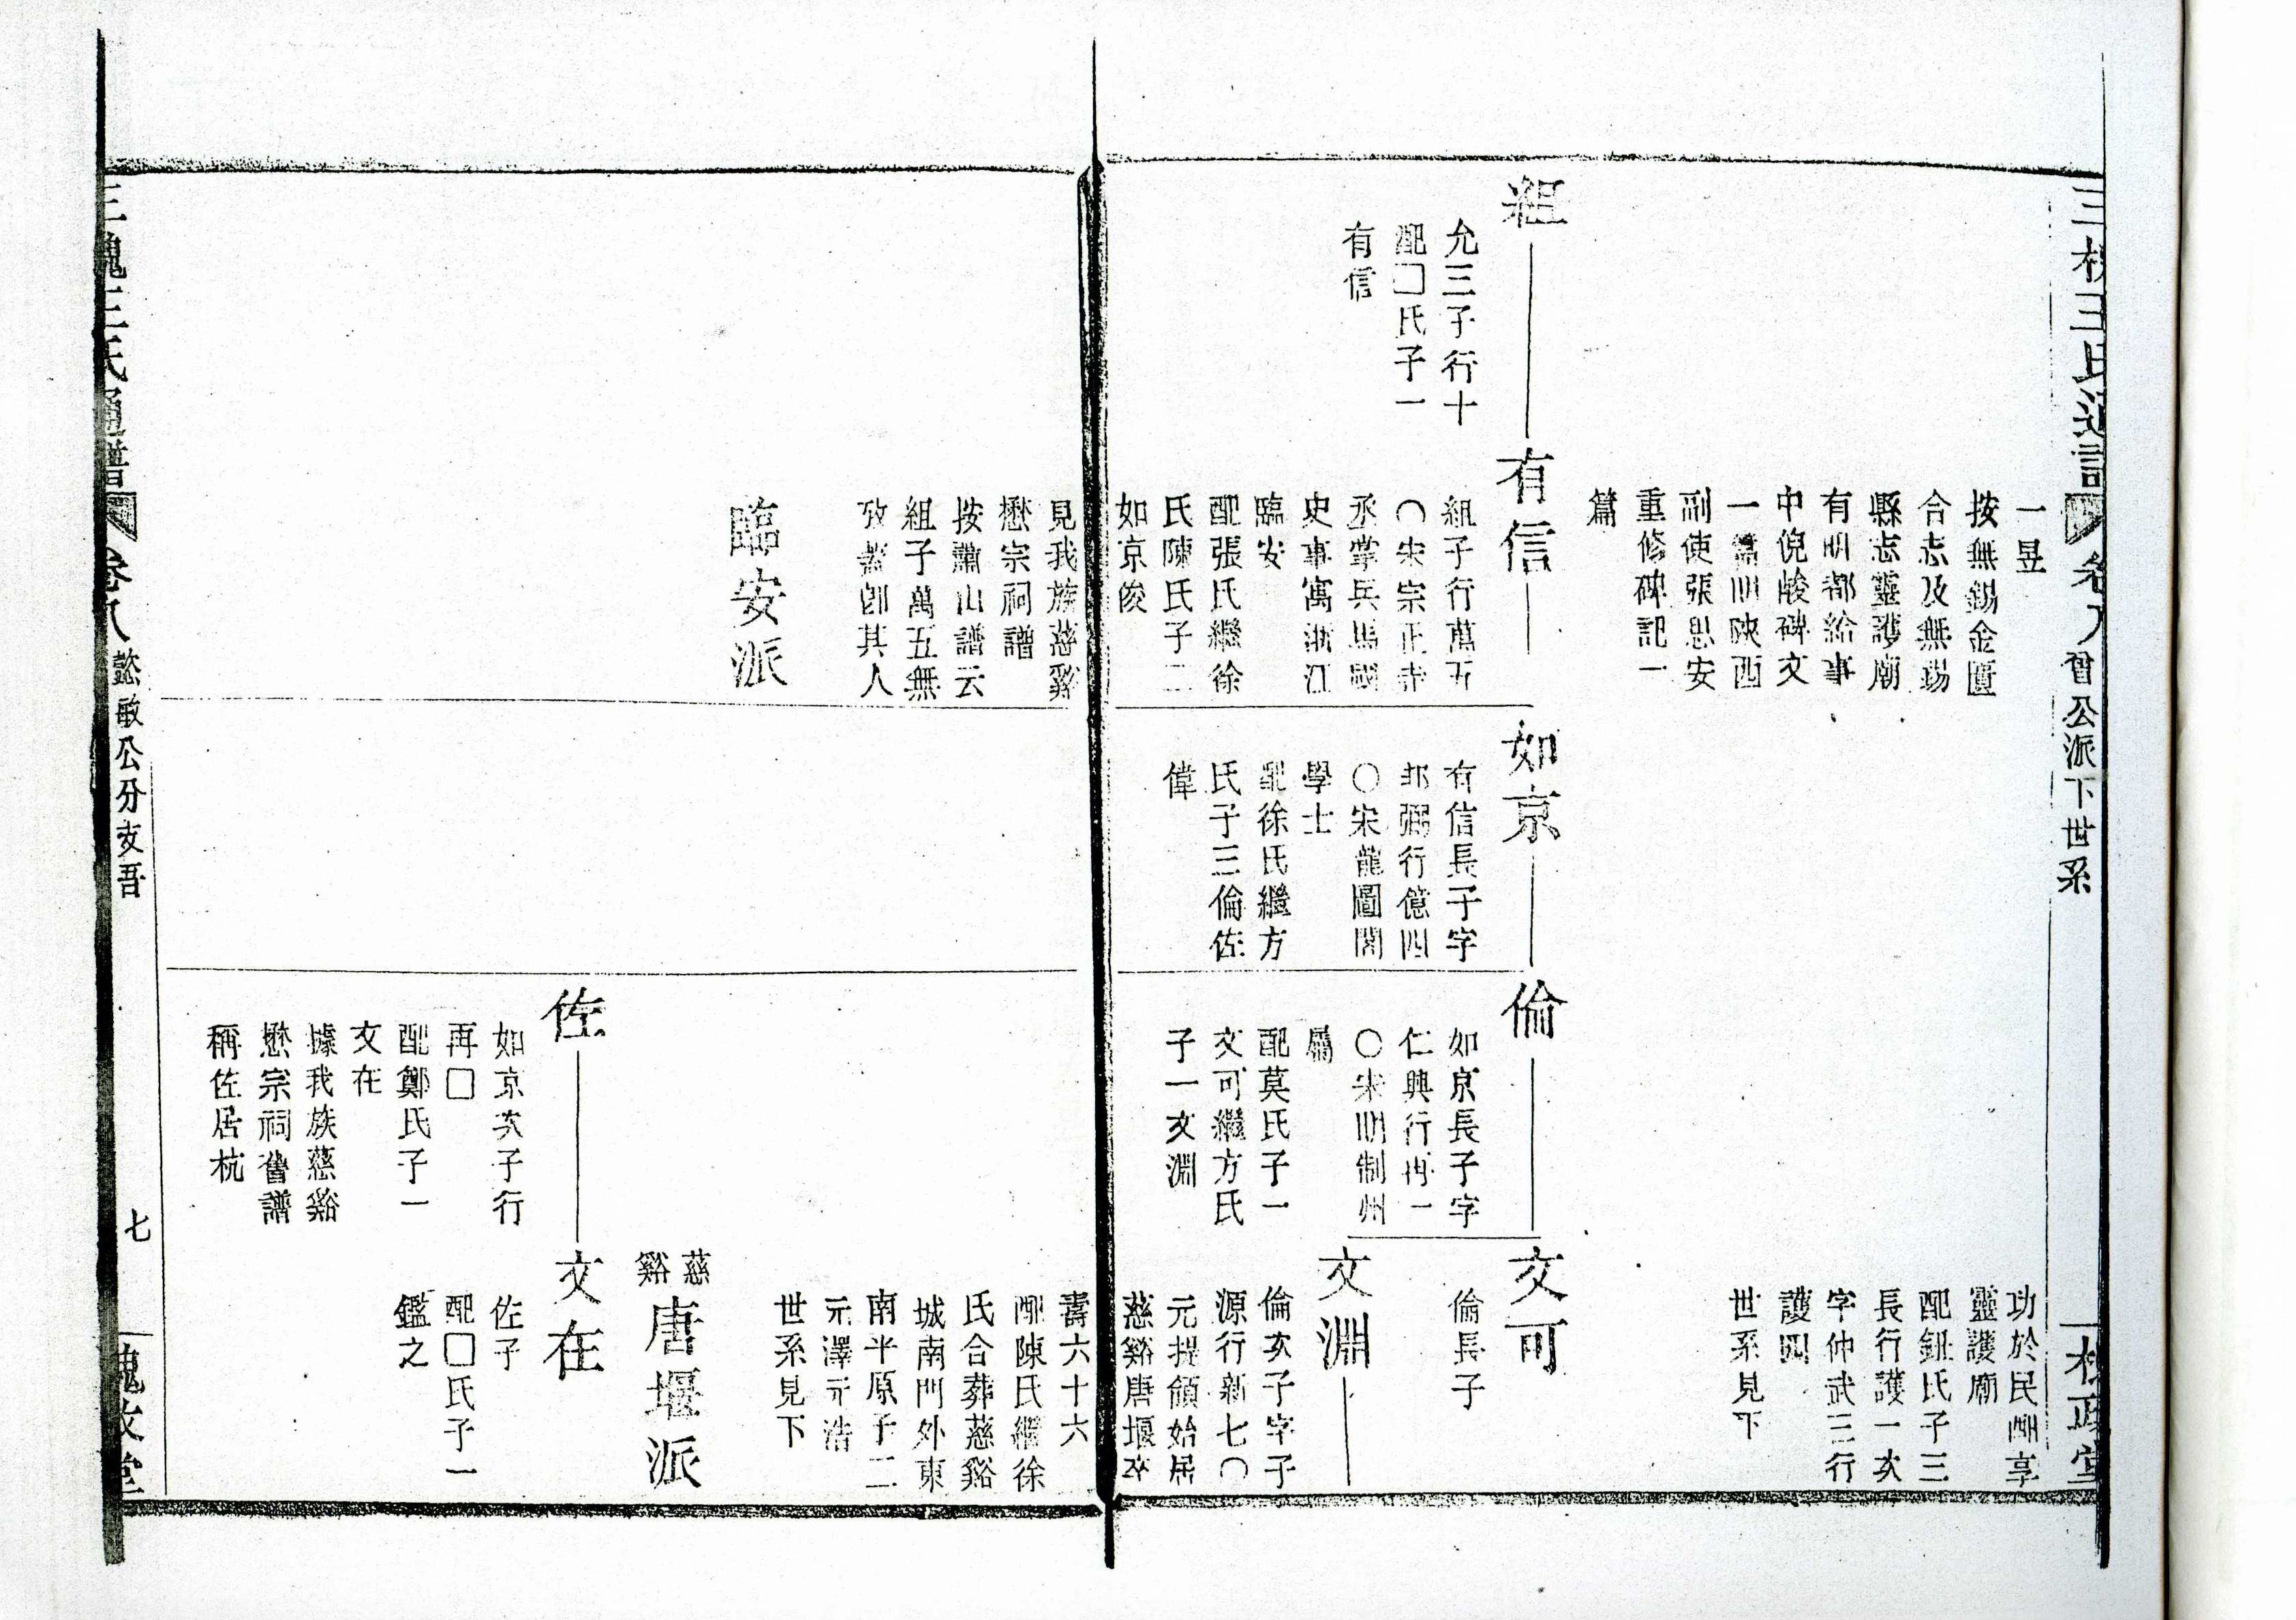 三槐王氏通譜
卷八
曾公派下世系
槐政堂
一昱
按無錫金匱
合志及無錫
縣志靈護廟
有明都給事
中倪峻碑文
一篇明陝西
副使張思安
重修碑記一
篇
功於民酬享
靈護廟
配鈕氏子三
長行護一次
字仲武三行
護四
世系見下
組
允三子行十
配□氏子一
有信
有信
組子行萬五
〇宋宗正寺
丞掌兵馬國
史事寓浙江
臨安
配張氏繼徐
氏陳氏子二
如京俊
如京
有信長子字
邦弼行億四
〇宋龍圖閣
學士
配徐氏繼方
氏子三倫佐
偉
倫
如京長子字
仁興行再一
〇宋明制州
屬
配莫氏子一
文可繼方氏
子一文淵
文可
倫長子
文淵
倫次子字子
源行新七〇
元提領始居
慈谿唐堰卒
見我族慈谿
懋宗祠譜
按蕭山譜云
組子萬五無
攷蓋卽其人
臨安派
壽六十六
配陳氏繼徐
氏合葬慈谿
城南門外東
南平原子二
元澤元浩
世系見下
慈
谿
唐堰派
佐
如京次子行
再□
配鄭氏子一
文在
據我族慈谿
懋宗祠舊譜
稱佐居杭
文在
佐子
配□氏子一
鑑之
三槐王氏通譜
卷八
懿敏公分支吾
七
槐政堂